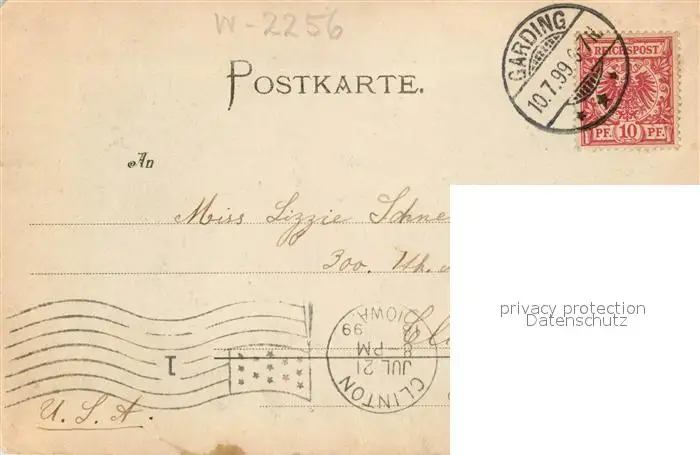 W-2256
GARDING
10.7.99. 6-7N.
REICHSPOST
PF. 10 PF.
POSTKARTE.
An
Miss Lizzie Schne
300. 4th.
privacy protection
Datenschutz
CLINTON
JUL 21
8-PM
99
IOWA.
1
Cli
U. S. A.